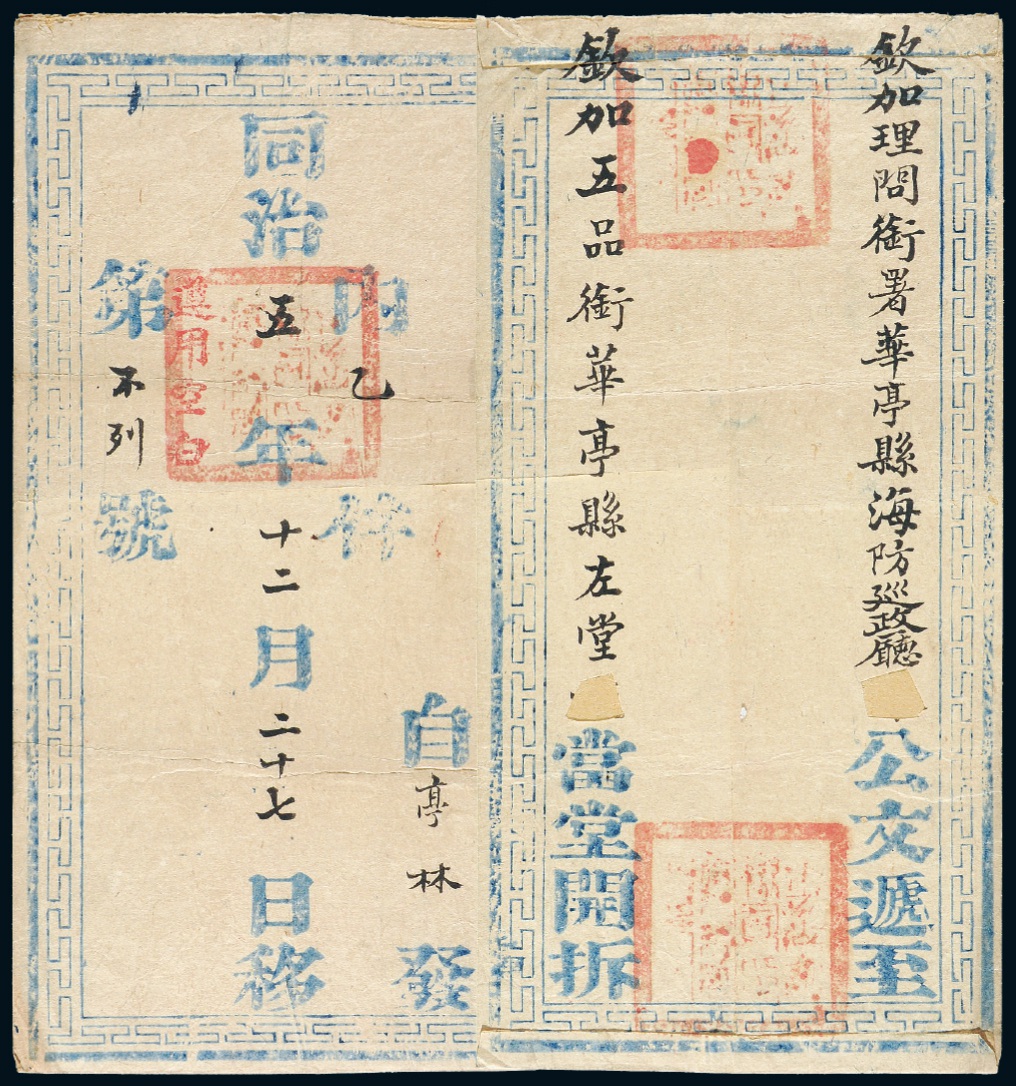 欽加理問銜署華亭縣海防廵政廳
公文遞至
欽加五品銜華亭縣左堂
當堂開拆
自亭林發
內乙件
同治五年十二月二十七日移
遵用空白
第不列號